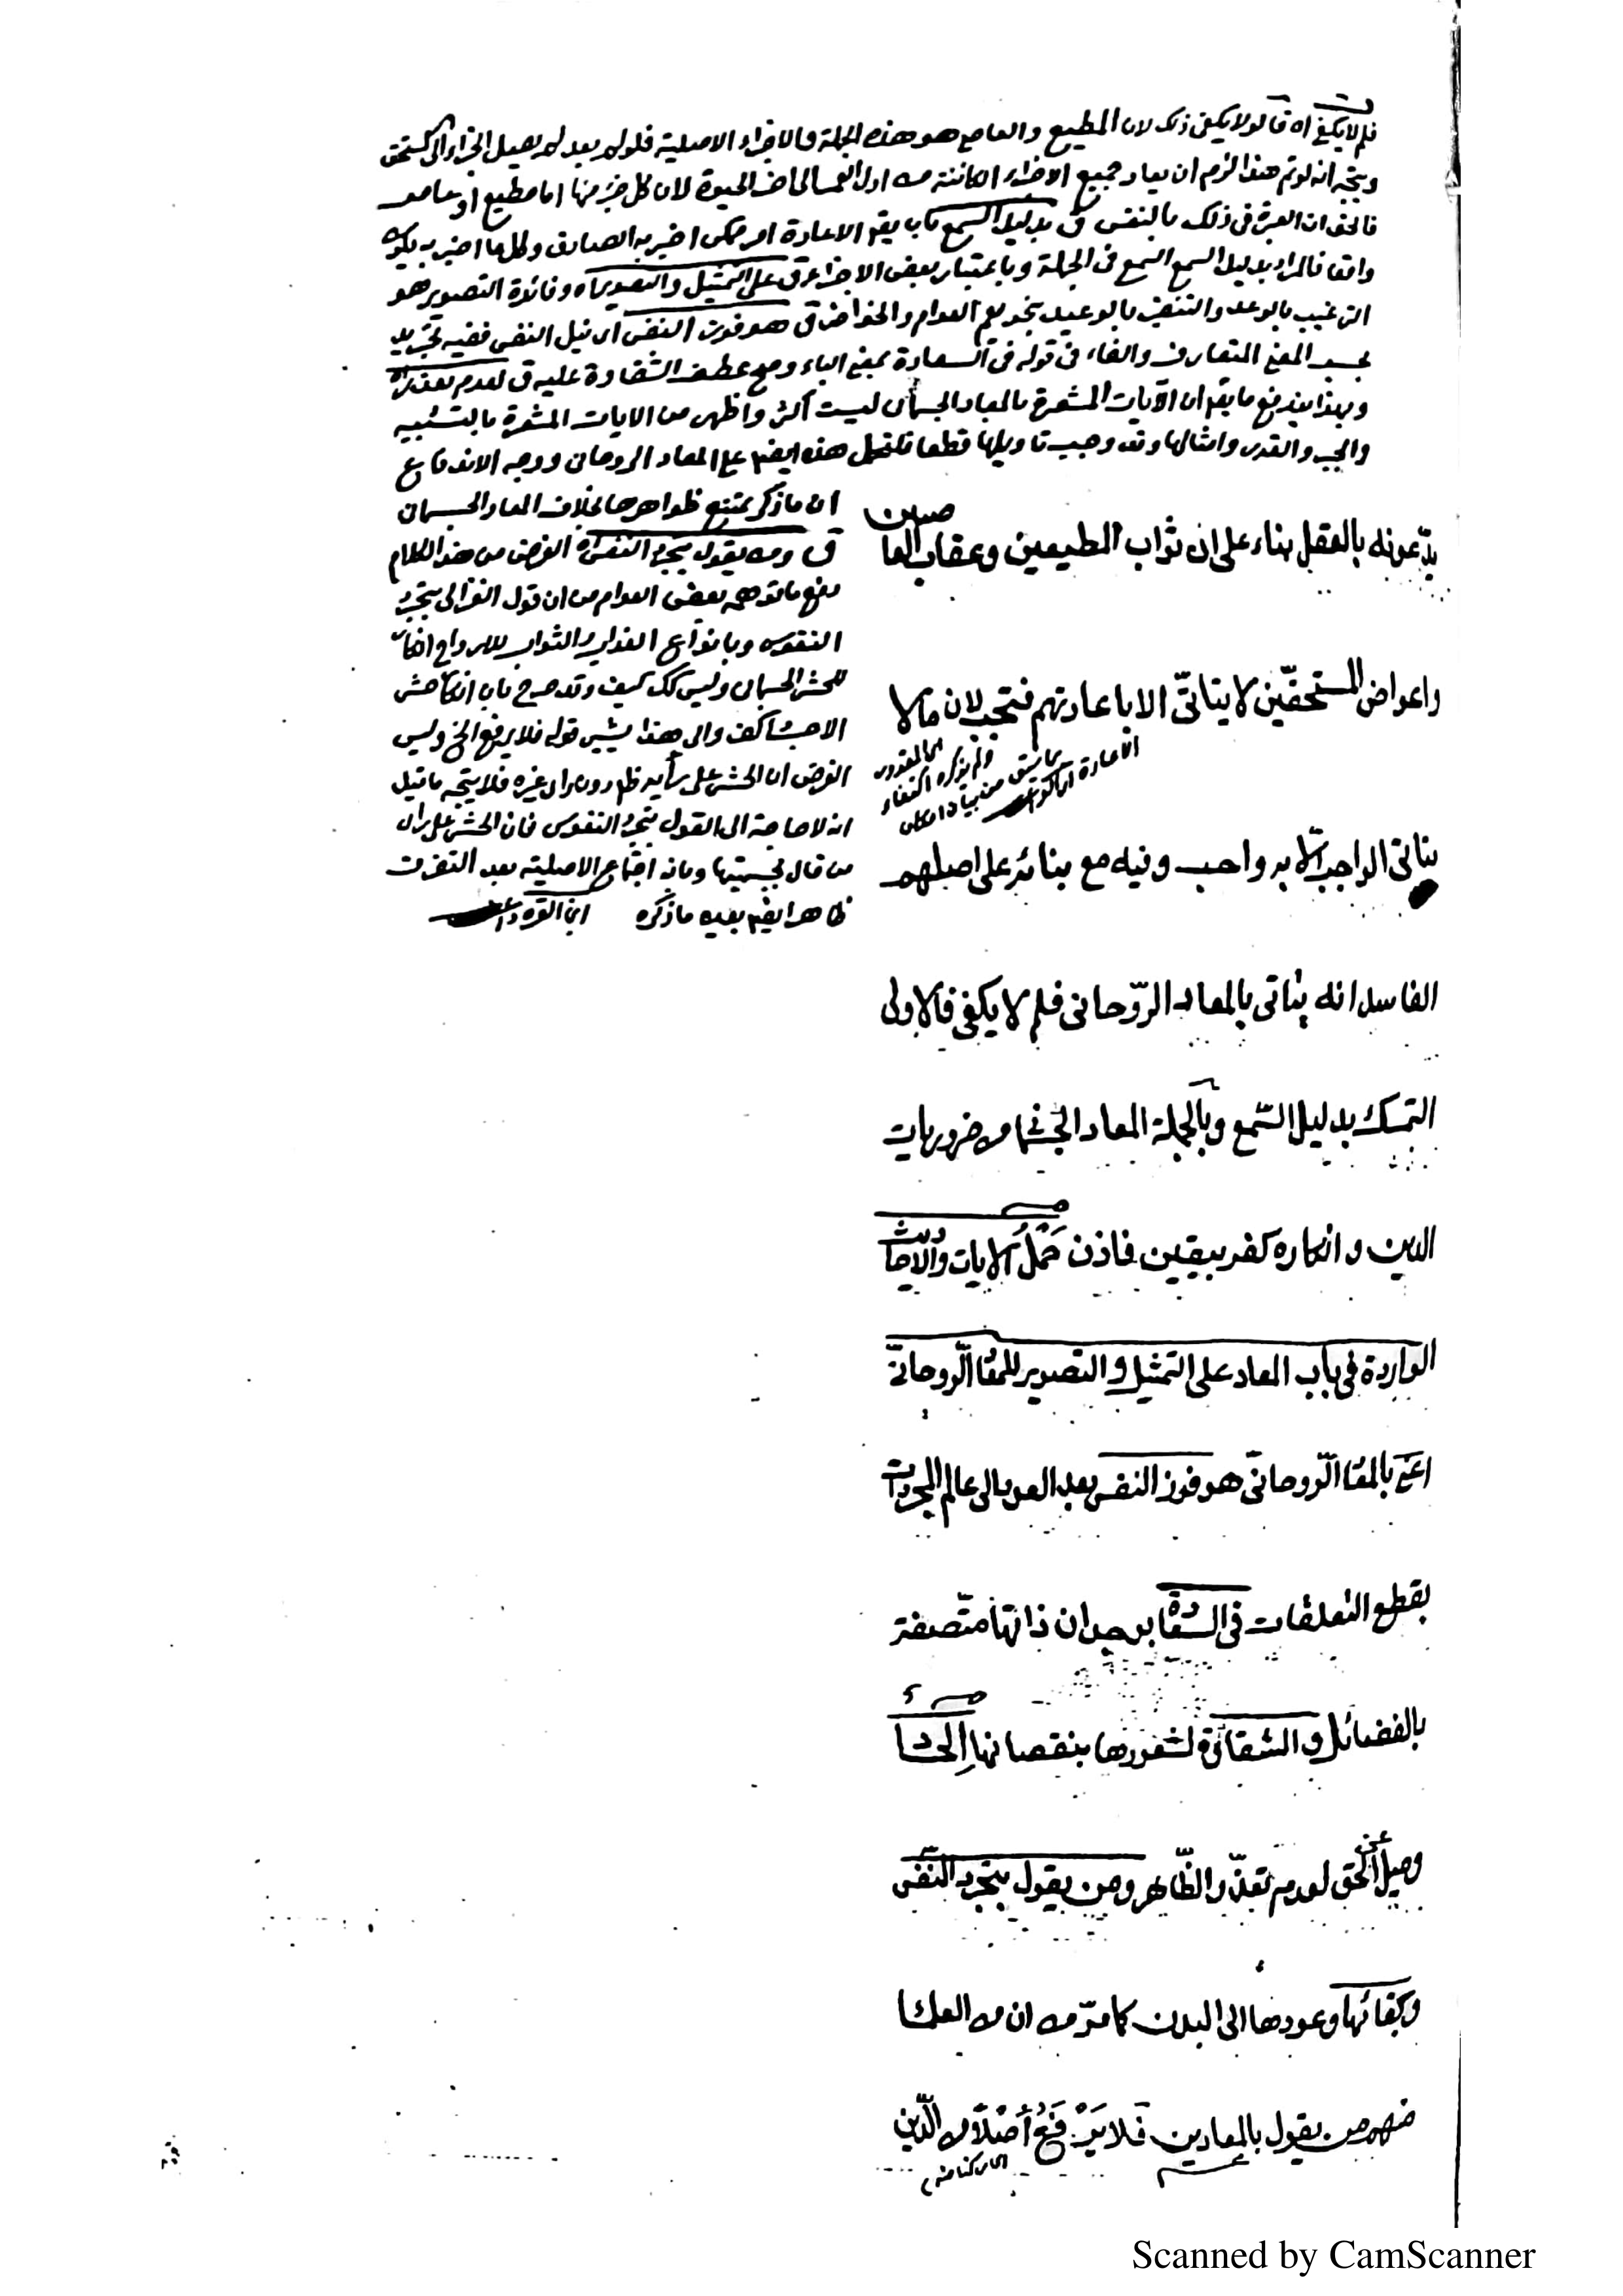 فلم لا يكفى اه قالوا لا يكفى ذلك لان المطيع والعاصى هو هذه الجملة والاجزاء الاصلية فلو لم يعد لم يصل الجزاء الى مستحق
ويتجه انه لو تم هذا لزم ان يعاد جميع الاجزاء الكائنة من اول الى اخر الحيوة لان كل جزء منها اما مطيع او عاص
فالحق ان العبرة فى ذلك بالنفس ق بدليل السمع بان يقم الاعادة امر ممكن اخبر به الصادق وكل ما اخبر به يكون
واقعا فالمراد بدليل السمع السمع فى الجملة وباعتبار بعض الاجزاء ق على التمثيل والتصوير اه وفائدة التصوير هو
الترغيب بالوعد والتنفير بالوعيد العوام والخواص ق هو فوز النفس اى نيل النفس ففيه تجريد
بحسب المعنى المتعارف والفاء فى قوله فى السعادة بمعنى الباء وصح عطف الشقاوة عليه ق لعدم تعذر اه
وبهذا يندفع ما يقم ان الآيات المشعرة بالمعاد الجسمانى ليست اكثر واظهر من الايات المشعرة بالتشبيه
والجبر والقدر وامثالها وقد وجب تاويلها قطعا هذه ايضم على المعاد الروحانى ووجه الاندفاع
ان ما ذكر يمتنع ظواهرها بخلاف المعاد الجسمانى
ق ومن يقول بتجرد النفس اه الغرض من هذا الكلام
دفع ما توهمه بعض العوام من ان قول الغزالى بتجرد
النفوس وبانواع العذاب والثواب للارواح انكار
للحشر الجسمانى وليس كك كيف وقد صرح بان انكار حشر
الاجساد كفر والى هذا يشير قوله فلا يرفع الخ وليس
الغرض ان الحشر على رأيه ظم دون راى غيره فلا يتجه ما قيل
انه لا حاجة الى القول بتجرد النفوس فان الحشر على راى
من قال بجسميتها وبانه اجتماع الاصلية بعد التفرق
ظاهر ايضم بعين ما ذكره ابن القره داغى
يدّعونه بالعقل بناء على ان ثواب المطيعين وعقاب العاصين
واعواض المستحقّين لا يتاتّى الا باعادتهم فتجب لان ما لا
يتاتى الواجب الّا به واجب وفيه مع بنائه على اصلهم
الفاسد انه يتاتى بالمعاد الرّوحانى فلم لا يكفى فالاولى
التمسك بدليل السّمع وبالجملة المعاد الجسمانى من ضروريات
الدين وانكاره كفر بيقين فاذن حَمْلُ الايات والاحاديث
الواردة فى باب المعاد على التمثيل والتصوير للمعاد الّروحانىّ
اعنى بالمعاد الّروحانىّ هو فوز النفس بعد العود الى عالم المجردات
بقطع التعلقات فى السعادة بوجدان ذاتها متّصفة
بالفضائل والشقاوة لشعورها بنقصانها اِلحادٌ
وميل عن الحق لعدم تعذّر الظّاهر ومن يقول بتجرد النّفس
وبقائها وعودها الى البدن كما مرّ من ان من العلما
منهم من يقول بالمعادين فَلا يَرْفَعُ أَصْلًا من الّدين